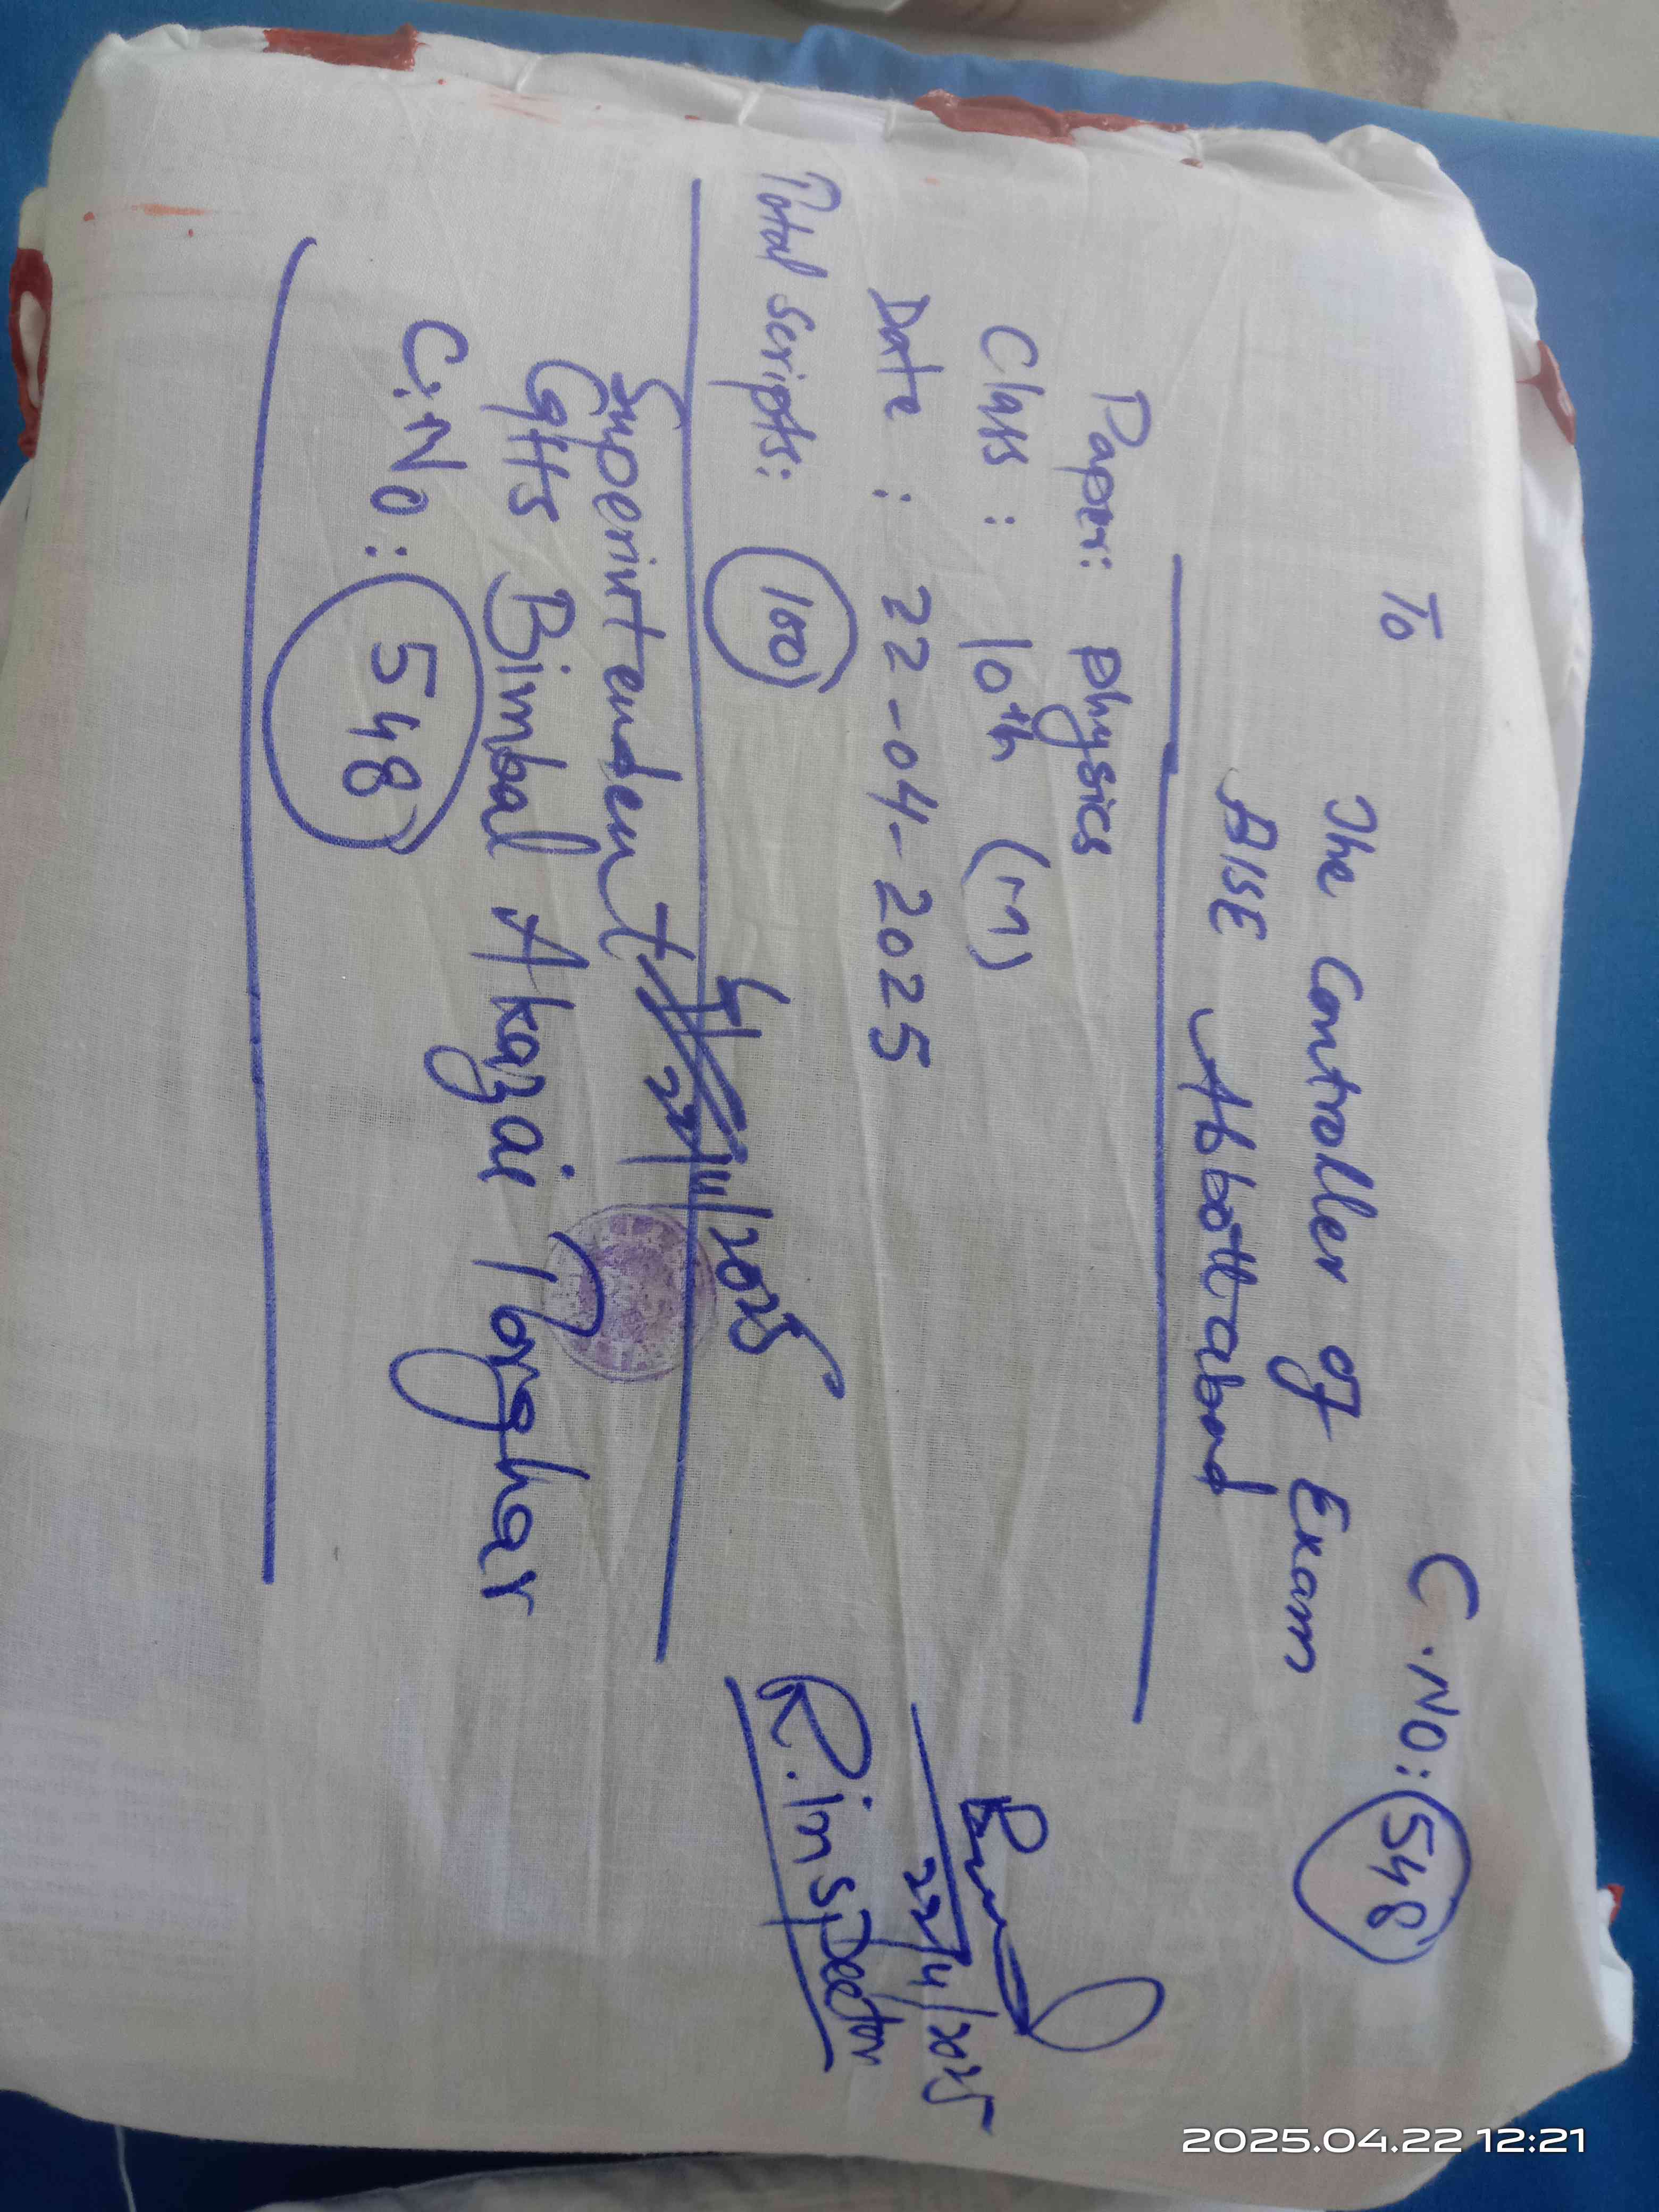 C.NO: 548
To
The Controller of Exam
BISE Abbottabad
Paper: Physics
Class: 10th (M)
Date: 22-04-2025
Total scripts: 100
22/4/2025
R.inspector
22/4/2025
Superintendent
GHS Bimbal Akazai Torghar
C.NO: 548
2025.04.22 12:21